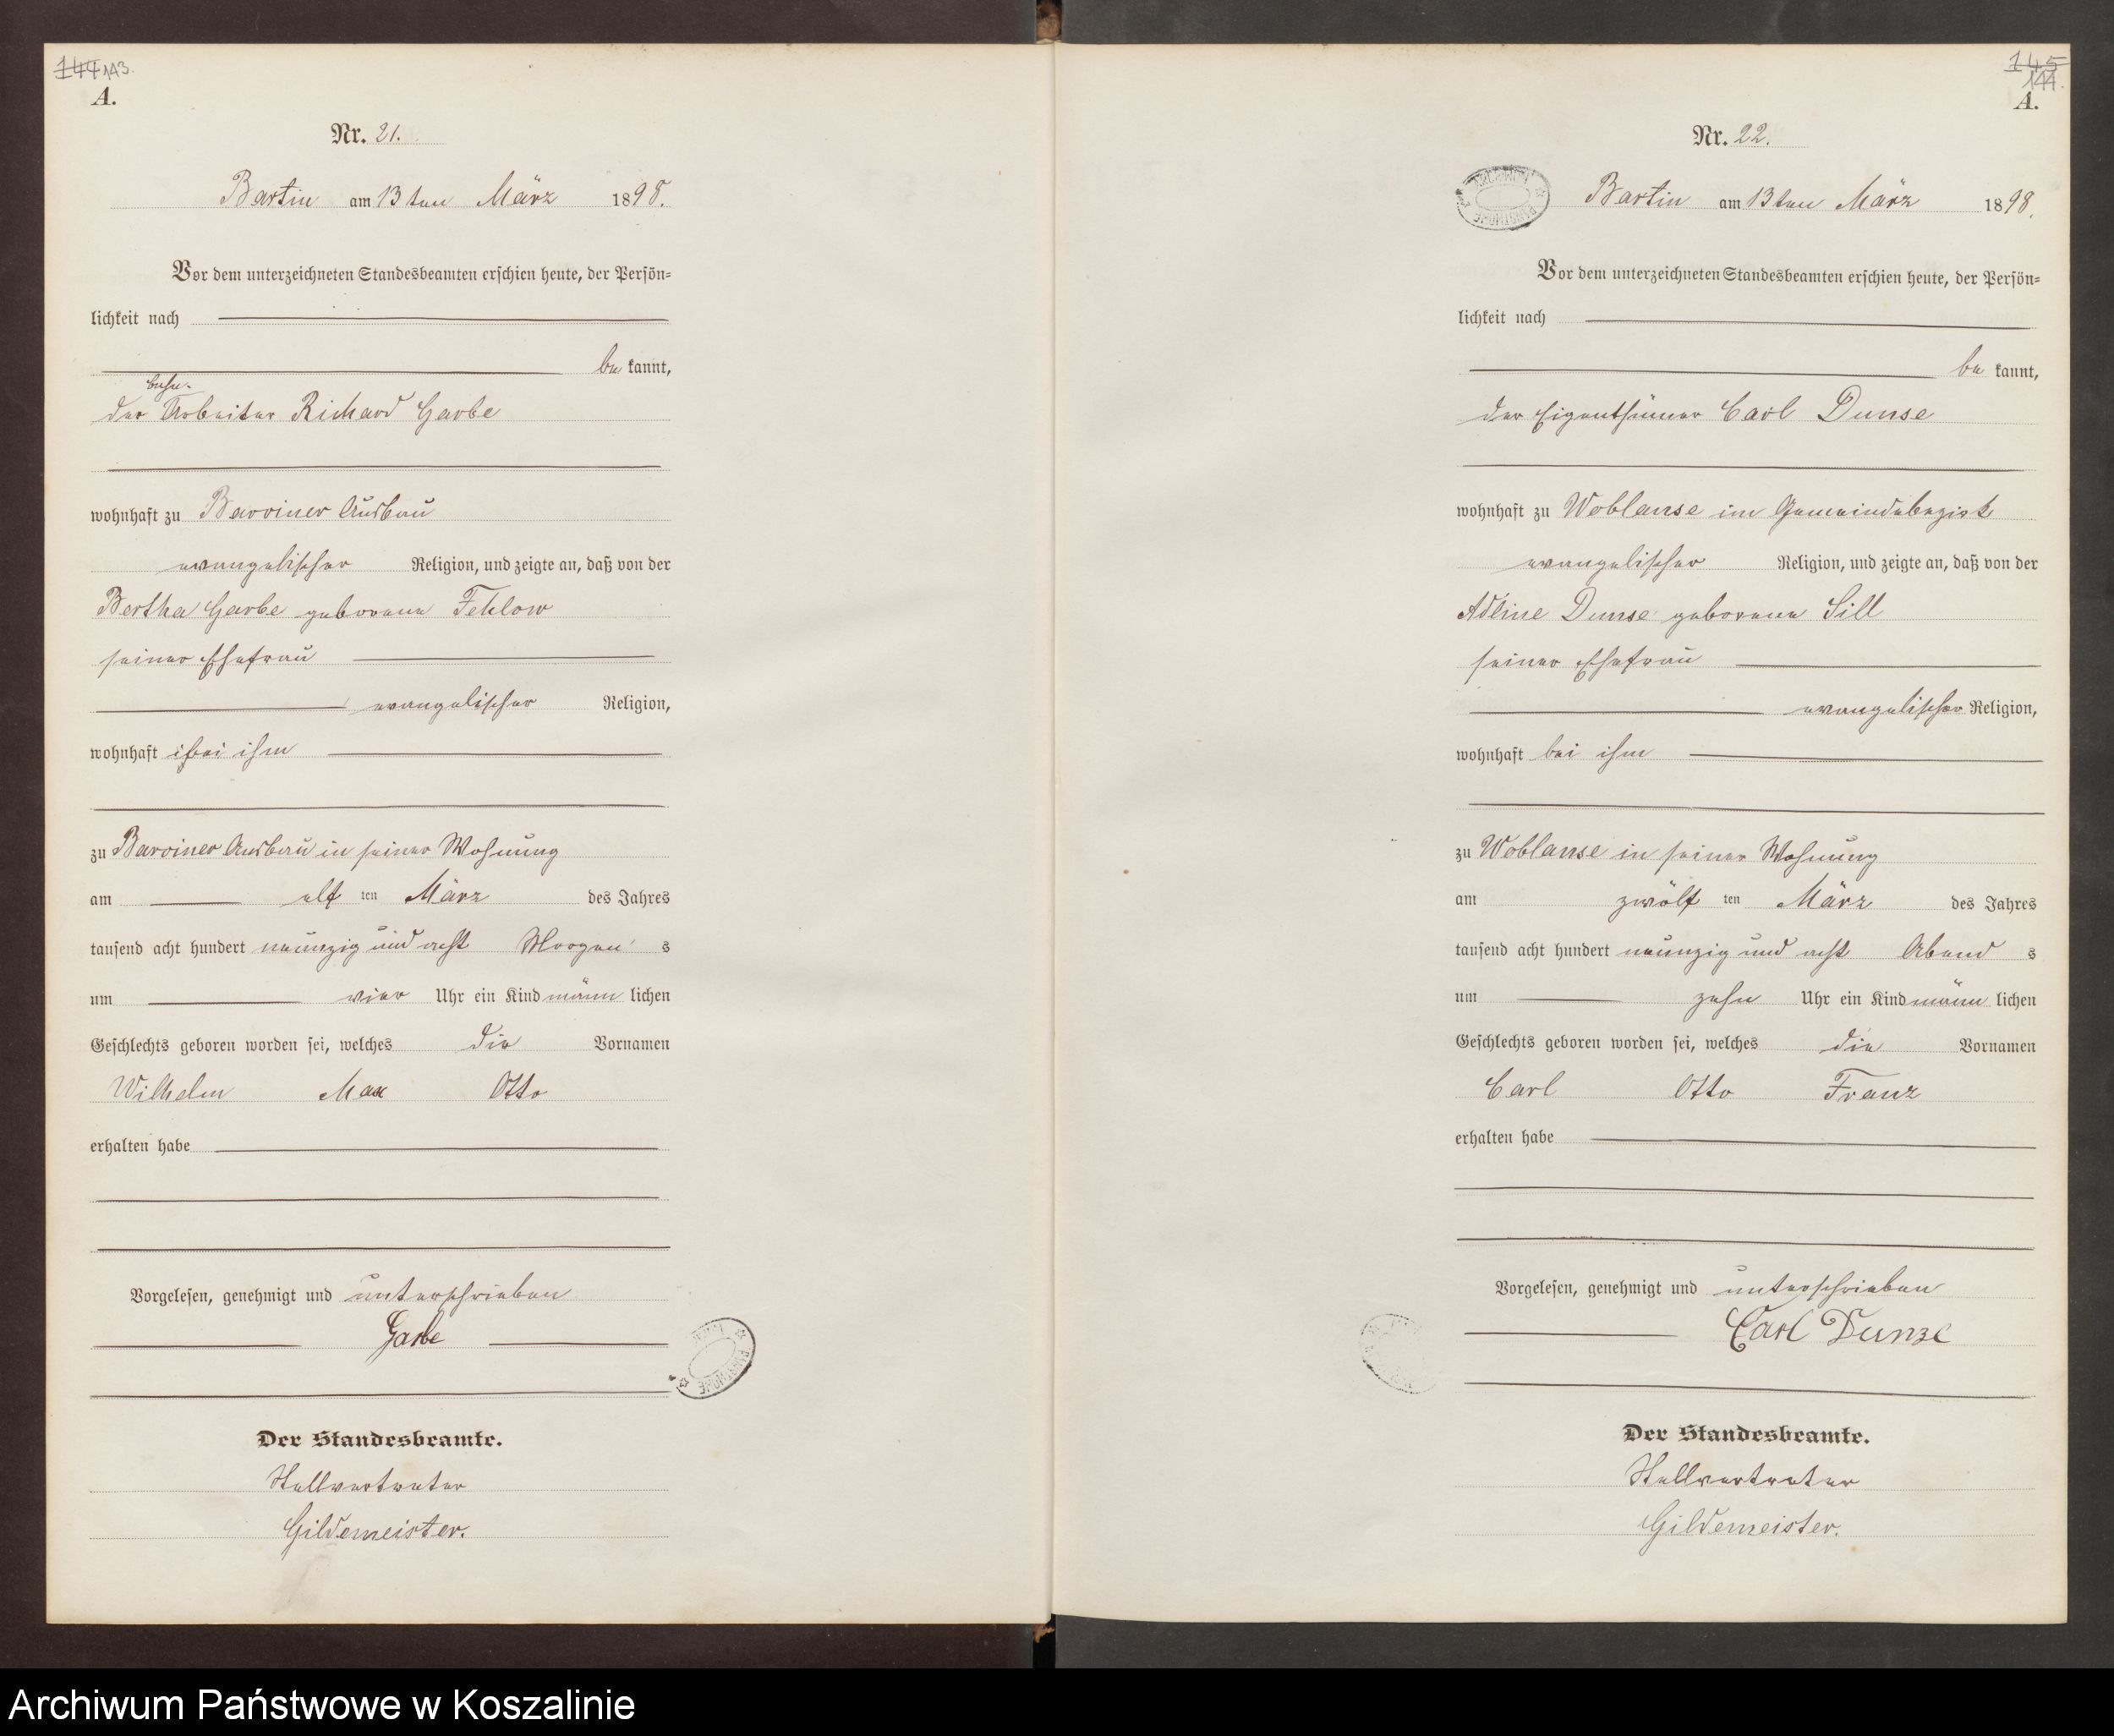 144 143.
A.
Nr. 21.
Bartin am 13 ten März 1898.
Vor dem unterzeichneten Standesbeamten erschien heute, der Persön=
lichkeit nach
be kannt,
der Arbeiter Richard Garbe
wohnhaft zu Barviner Ausbau
evangelischer Religion, und zeigte an, daß von der
Bertha Garbe geborene Fehlow
seiner Ehefrau
evangelischer Religion,
wohnhaft bei ihm
zu Barviner Ausbau in seiner Wohnung
am elf ten März des Jahres
tausend acht hundert neunzig und acht Morgen s
um vier Uhr ein Kind männ lichen
Geschlechts geboren worden sei, welches die Vornamen
Wilhelm Max Otto
erhalten habe
Vorgelesen, genehmigt und unterschrieben
Garbe
Der Standesbeamte.
Stellvertreter
Gildemeister.
145
144.
A.
Nr. 22.
Bartin am 13 ten März 1898.
Vor dem unterzeichneten Standesbeamten erschien heute, der Persön=
lichkeit nach
be kannt,
der Eigenthümer Carl Dunse
wohnhaft zu Woblanse im Gemeindebezirk
evangelischer Religion, und zeigte an, daß von der
Adline Dunse geborene Sill
seiner Ehefrau
evangelischer Religion,
wohnhaft bei ihm
zu Woblanse in seiner Wohnung
am zwölf ten März des Jahres
tausend acht hundert neunzig und acht Abend s
um zehn Uhr ein Kind männ lichen
Geschlechts geboren worden sei, welches die Vornamen
Carl Otto Franz
erhalten habe
Vorgelesen, genehmigt und unterschrieben
Carl Dunze
Der Standesbeamte.
Stellvertreter
Gildemeister.
Archiwum Państwowe w Koszalinie